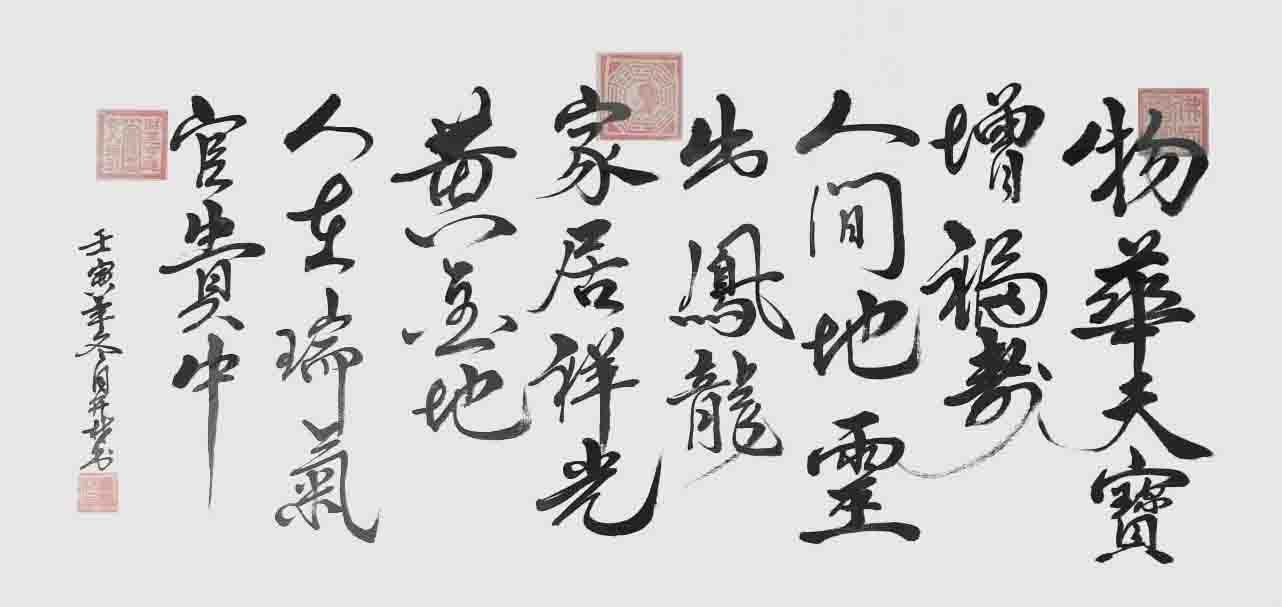 物華夫寶
增福壽
人間地靈
出鳳龍
家居祥光
黄金地
人在瑞氣
富貴中
壬寅年冬月